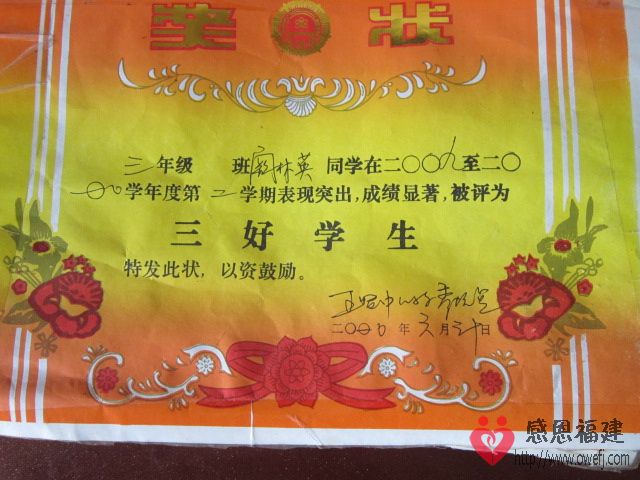 奖 状
三年级 班 林英 同学在二〇〇九至二〇
一〇学年度第二学期表现突出,成绩显著,被评为
三好学生
特发此状,以资鼓励。
二〇一〇年六月三十日
感恩福建
http://www.owefj.com